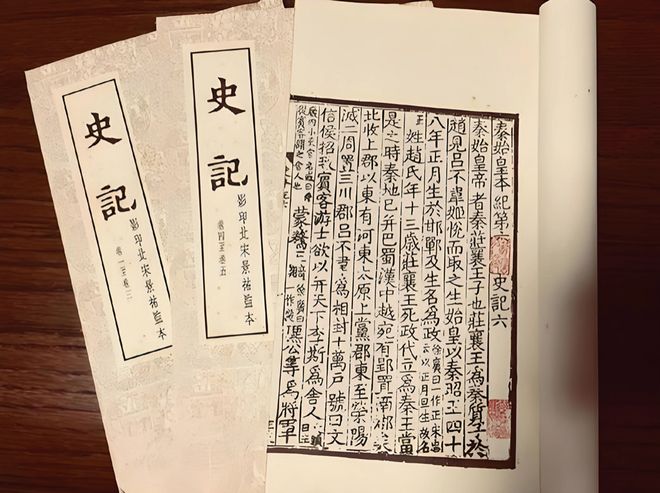 史記
影印北宋景祐監本
卷一至卷三
史記
影印北宋景祐監本
卷四至卷五
秦始皇本紀第 史記六
秦始皇帝者秦莊襄王子也莊襄王爲秦質子於
趙見呂不韋姬恱而取之生始皇以秦昭王四十
八年正月生於邯鄲及生名爲政徐廣曰一作正宋忠云以正月旦生故名
正姓趙氏年十三歲莊襄王死政代立爲秦王當
是之時秦地已并巴蜀漢中越宛有郢置南郡矣
北收上郡以東有河東太原上黨郡東至滎陽
滅二周置三川郡呂不韋爲相封十萬戶號曰文
信侯招致賓客游士欲以并天下李斯爲舍人
蒙驁王齮徐廣曰一作麃公等爲將軍